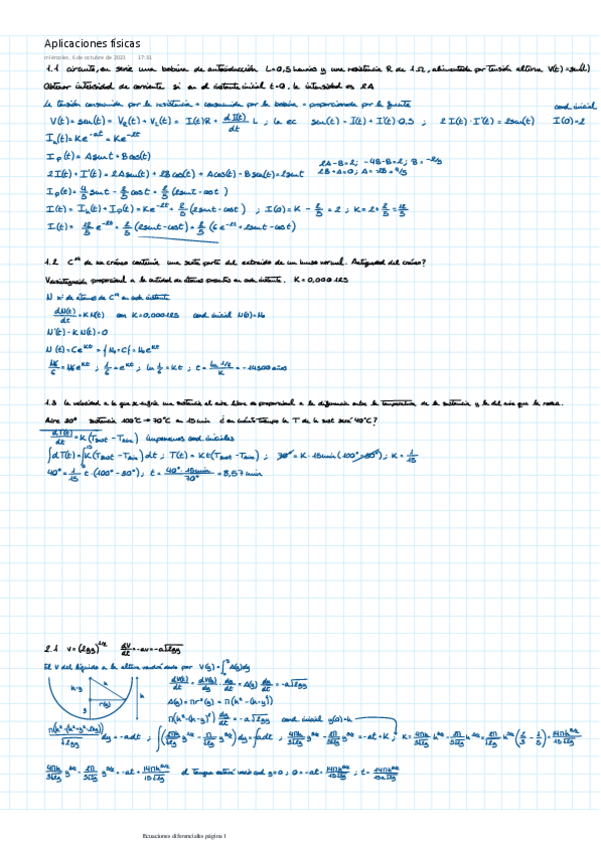 Aplicaciones físicas
miércoles, 6 de octubre de 2021 17:31
1.1 circuito, en serie una bobina de autoinducción L=0,5 henrios y una resistencia R de 1Ω, alimentada por tensión alterna V(t)=sen(t)
Obtener intensidad de corriente si en el instante inicial t=0, la intensidad es 2A
La tensión consumida por la resistencia + consumida por la bobina = proporcionada por la fuente cond. inicial
V(t) = sen(t) = V_R(t) + V_L(t) = I(t)R + dI(t)/dt L ; la ec sen(t) = I(t) + I'(t)·0,5 ; 2I(t)+I'(t) = 2sen(t) I(0)=2
I_h(t) = Ke^-at = Ke^-2t
I_p(t) = A sent + B cos(t)
2A-B=2; -4B-B=2; B=-2/5
2I(t) + I'(t) = 2A sen(t) + 2B cos(t) + A cos(t) - B sen(t) = 2sent
2B+A=0; A=-2B=4/5
I_p(t) = 4/5 sent - 2/5 cost = 2/5 (2sent - cost)
I(t) = I_h(t) + I_p(t) = Ke^-2t + 2/5 (2sent - cost) ; I(0) = K - 2/5 = 2 ; K = 2 + 2/5 = 12/5
I(t) = 12/5 e^-2t + 2/5 (2sent - cost) = 2/5 (6e^-2t + 2sent - cost)
1.2 C^14 de un cráneo contenía una sexta parte del extraído de un hueso normal. Antigüedad del cráneo?
Desintegración proporcional a la cantidad de átomos presentes en cada instante. K=0,000125
N nº de átomos de C^14 en cada instante
dN(t)/dt = KN(t) con K=0,000125 cond. inicial N(0)=N₀
N'(t) - KN(t) = 0
N(t) = Ce^Kt = {N₀=C} = N₀e^Kt
N₀/6 = N₀e^Kt ; 1/6 = e^Kt ; ln 1/6 = Kt ; t = ln 1/6 / K = -14500 años
1.3 la velocidad a la que se enfría una sustancia al aire libre es proporcional a la diferencia entre la temperatura de la sustancia y la del aire que la rodea.
Aire 30° sustancia 100°C → 70°C en 15 min ¿en cuánto tiempo la T de la sust será 40°C?
dT(t)/dt = K(Tsust - Taire) Imponemos cond. iniciales
∫dT(t) = ∫K(Tsust - Taire)dt ; T(t) = Kt(Tsust - Taire) ; 70° = K·15min(100°-30°) ; K = 1/15
40° = 1/15 t·(100°-30°) ; t = 40°·15min / 70° = 8,57 min
2.1 v=(2gy)^1/2 dV/dt = -av = -a√2gy
El V del líquido a la altura vendrá dado por V(y) = ∫A(y)dy
dV(t)/dt = dV(y)/dy · dy/dt = A(y) dy/dt = -a√2gy
h-y h h
y r(y)
A(y) = πr²(y) = π(h²-(h-y)²)
π(h²-(h-y)²) dy/dt = -a√2gy cond. inicial y(0)=h
Ecuaciones diferenciales página 1